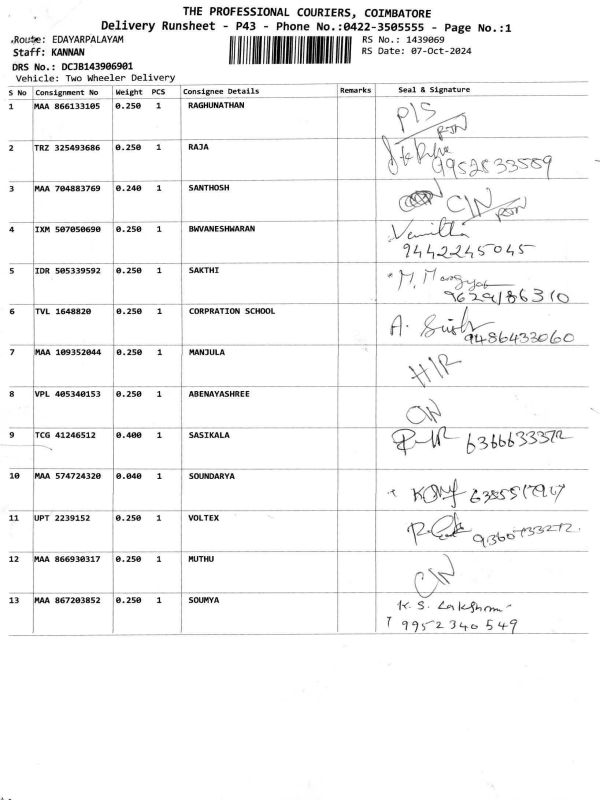 THE PROFESSIONAL COURIERS, COIMBATORE
Delivery Runsheet - P43 - Phone No.:0422-3505555 - Page No.:1
Route: EDAYARPALAYAM RS No.: 1439069
Staff: KANNAN RS Date: 07-Oct-2024
DRS No.: DCJB143906901
Vehicle: Two Wheeler Delivery
S No Consignment No Weight PCS Consignee Details Remarks Seal & Signature
1 MAA 866133105 0.250 1 RAGHUNATHAN P/S
RTN
2 TRZ 325493686 0.250 1 RAJA
9952833589
3 MAA 704883769 0.240 1 SANTHOSH C/N
RTN
4 IXM 507050690 0.250 1 BWVANESHWARAN Vanitha
9442245045
5 IDR 505339592 0.250 1 SAKTHI M.
9629186310
6 TVL 1648820 0.250 1 CORPRATION SCHOOL A.
9486433060
7 MAA 109352044 0.250 1 MANJULA H/R
8 VPL 405340153 0.250 1 ABENAYASHREE C/N
9 TCG 41246512 0.400 1 SASIKALA 6366633372
10 MAA 574724320 0.040 1 SOUNDARYA
11 UPT 2239152 0.250 1 VOLTEX 9360733272
12 MAA 866930317 0.250 1 MUTHU C/N
13 MAA 867203852 0.250 1 SOUMYA K. S. Lakshmi
9952340549